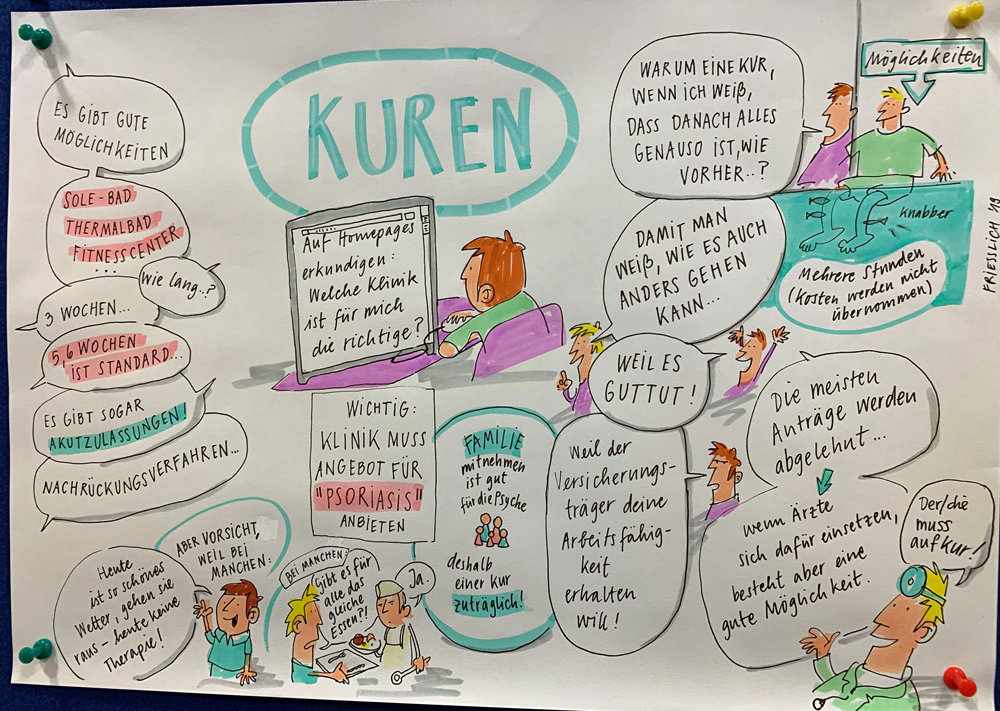 KUREN
ES GIBT GUTE
MÖGLICHKEITEN
SOLE-BAD
THERMALBAD
FITNESSCENTER
...
Wie lang..?
3 WOCHEN...
5,6 WOCHEN
IST STANDARD...
ES GIBT SOGAR
AKUTZULASSUNGEN!
NACHRÜCKUNGSVERFAHREN...
Auf Homepages
erkundigen:
Welche Klinik
ist für mich
die richtige?
WARUM EINE KUR,
WENN ICH WEIß,
DASS DANACH ALLES
GENAUSO IST, WIE
VORHER..?
Möglichkeiten
knabber
Mehrere Stunden
(Kosten werden nicht
übernommen)
FRIESSLICH '19
DAMIT MAN
WEIß, WIE ES AUCH
ANDERS GEHEN
KANN...
WEIL ES
GUTTUT!
WICHTIG:
KLINIK MUSS
ANGEBOT FÜR
"PSORIASIS"
ANBIETEN
FAMILIE
mitnehmen
ist gut
für die Psyche
deshalb
einer Kur
zuträglich!
Weil der
Versicherungs-
träger deine
Arbeitsfähig-
keit
erhalten
will!
Die meisten
Anträge werden
abgelehnt...
wenn Ärzte
sich dafür einsetzen,
besteht aber eine
gute Möglichkeit.
Der/die
muss
auf Kur!
ABER VORSICHT,
WEIL BEI
MANCHEN:
Heute
ist so schönes
Wetter, gehen sie
raus - heute keine
Therapie!
BEI MANCHEN:
Gibt es für
alle das
gleiche
Essen?!
Ja.